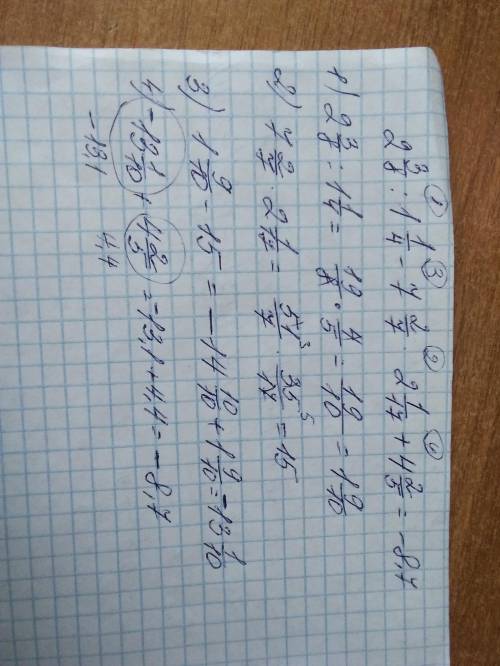 ① ③ ② ④
2 3/8 : 1 1/4 - 7 2/7 · 2 1/17 + 4 2/5 = -8,7
1) 2 3/8 : 1 1/4 = 19/8 · 4/5 = 19/10 = 1 9/10
2) 7 2/7 · 2 1/17 = 51/7 · 35/17 = 15
3) 1 9/10 - 15 = -14 10/10 + 1 9/10 = -13 1/10
4) -13 1/10 + 4 2/5 = -13,1 + 4,4 = -8,7
-13,1 4,4